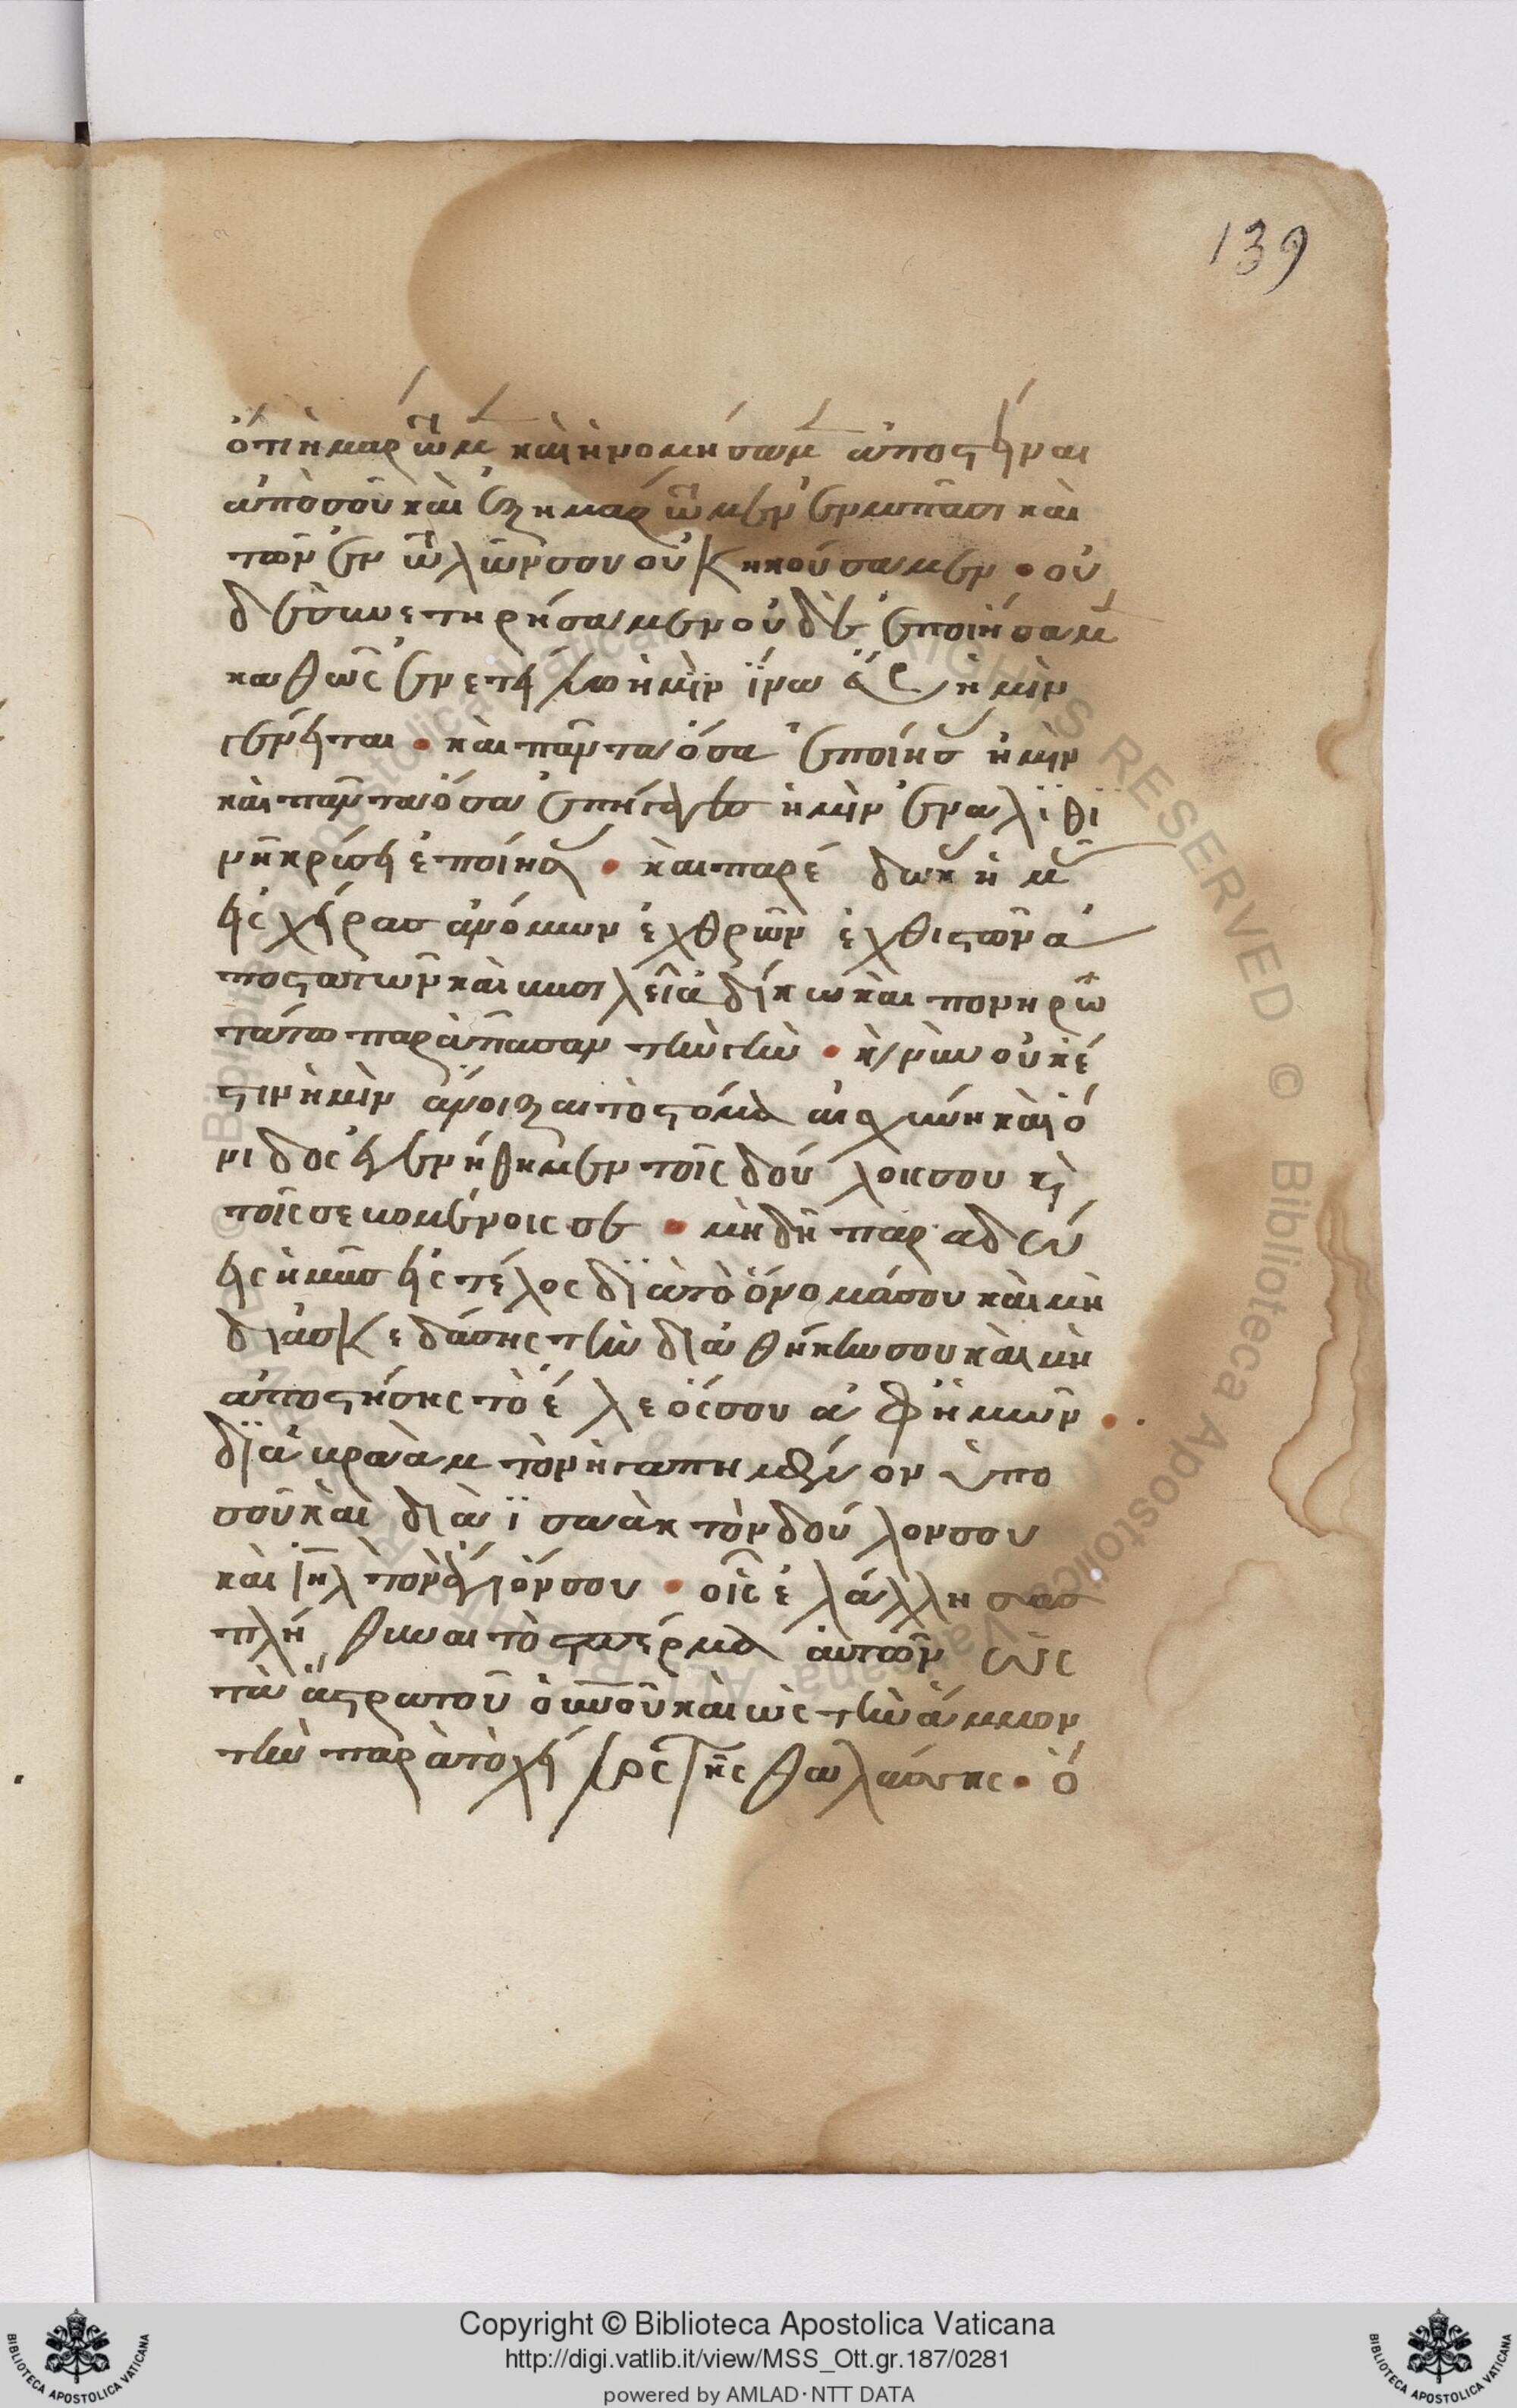 139
ὅτι ἡμάρτομεν καὶ ἠνομήσαμεν ἀποστῆναι
ἀπὸ σοῦ καὶ ἐξημάρτομεν ἐν πᾶσι καὶ
τῶν ἐντολῶν σου οὐκ ἠκούσαμεν · οὐ
δὲ συνετηρήσαμεν οὐδὲ ἐποιήσαμεν
καθὼς ἐνετείλω ἡμῖν ἵνα εὖ ἡμῖν
γένηται · καὶ πάντα ὅσα ἐποίησας ἡμῖν
καὶ πάντα ὅσα ἐπήγαγες ἡμῖν ἐν ἀληθι
νῆ κρίσει ἐποίησας · καὶ παρέδωκας ἡμᾶς
εἰς χεῖρας ἀνόμων ἐχθρῶν ἐχθίστων ἀ
ποστατῶν καὶ βασιλεῖ ἀδίκω καὶ πονηρω
τάτω παρὰ πᾶσαν τὴν γῆν · καὶ νῦν οὐκ ἔ
στιν ἡμῖν ἀνοῖξαι τὸ στόμα αἰσχύνη καὶ ὄ
νιδος ἐγενήθημεν τοῖς δούλοις σου καὶ
τοῖς σεβομένοις σε · μὴ δὴ παραδώ
εις ἡμᾶς εἰς τέλος διὰ τὸ ὄνομά σου καὶ μὴ
διασκεδάσης τὴν διαθήκην σου καὶ μὴ
ἀποστήσης τὸ ἔλεός σου ἀφ' ἡμῶν ·
διὰ ἀβραὰμ τὸν ἠγαπημένον ὑπὸ
σοῦ καὶ διὰ ἰσαὰκ τὸν δοῦλον σου
καὶ ιηλ τὸν ἅγιόν σου · οἷς ἐλάλλησας
πληθῦναι τὸ σπέρμα αὐτῶν ὡς
τὰ ἄστρα τοῦ οὐνοῦ καὶ ὡς τὴν ἄμμον
τὴν παρὰ τὸ χεῖλος τῆς θαλάσσης · ὅ
© Biblioteca Apostolica Vaticana ALL RIGHTS RESERVED © Biblioteca Apostolica Vaticana ALL RIGHTS
Copyright © Biblioteca Apostolica Vaticana
http://digi.vatlib.it/view/MSS_Ott.gr.187/0281
powered by AMLAD·NTT DATA
BIBLIOTECA APOSTOLICA VATICANA
BIBLIOTECA APOSTOLICA VATICANA